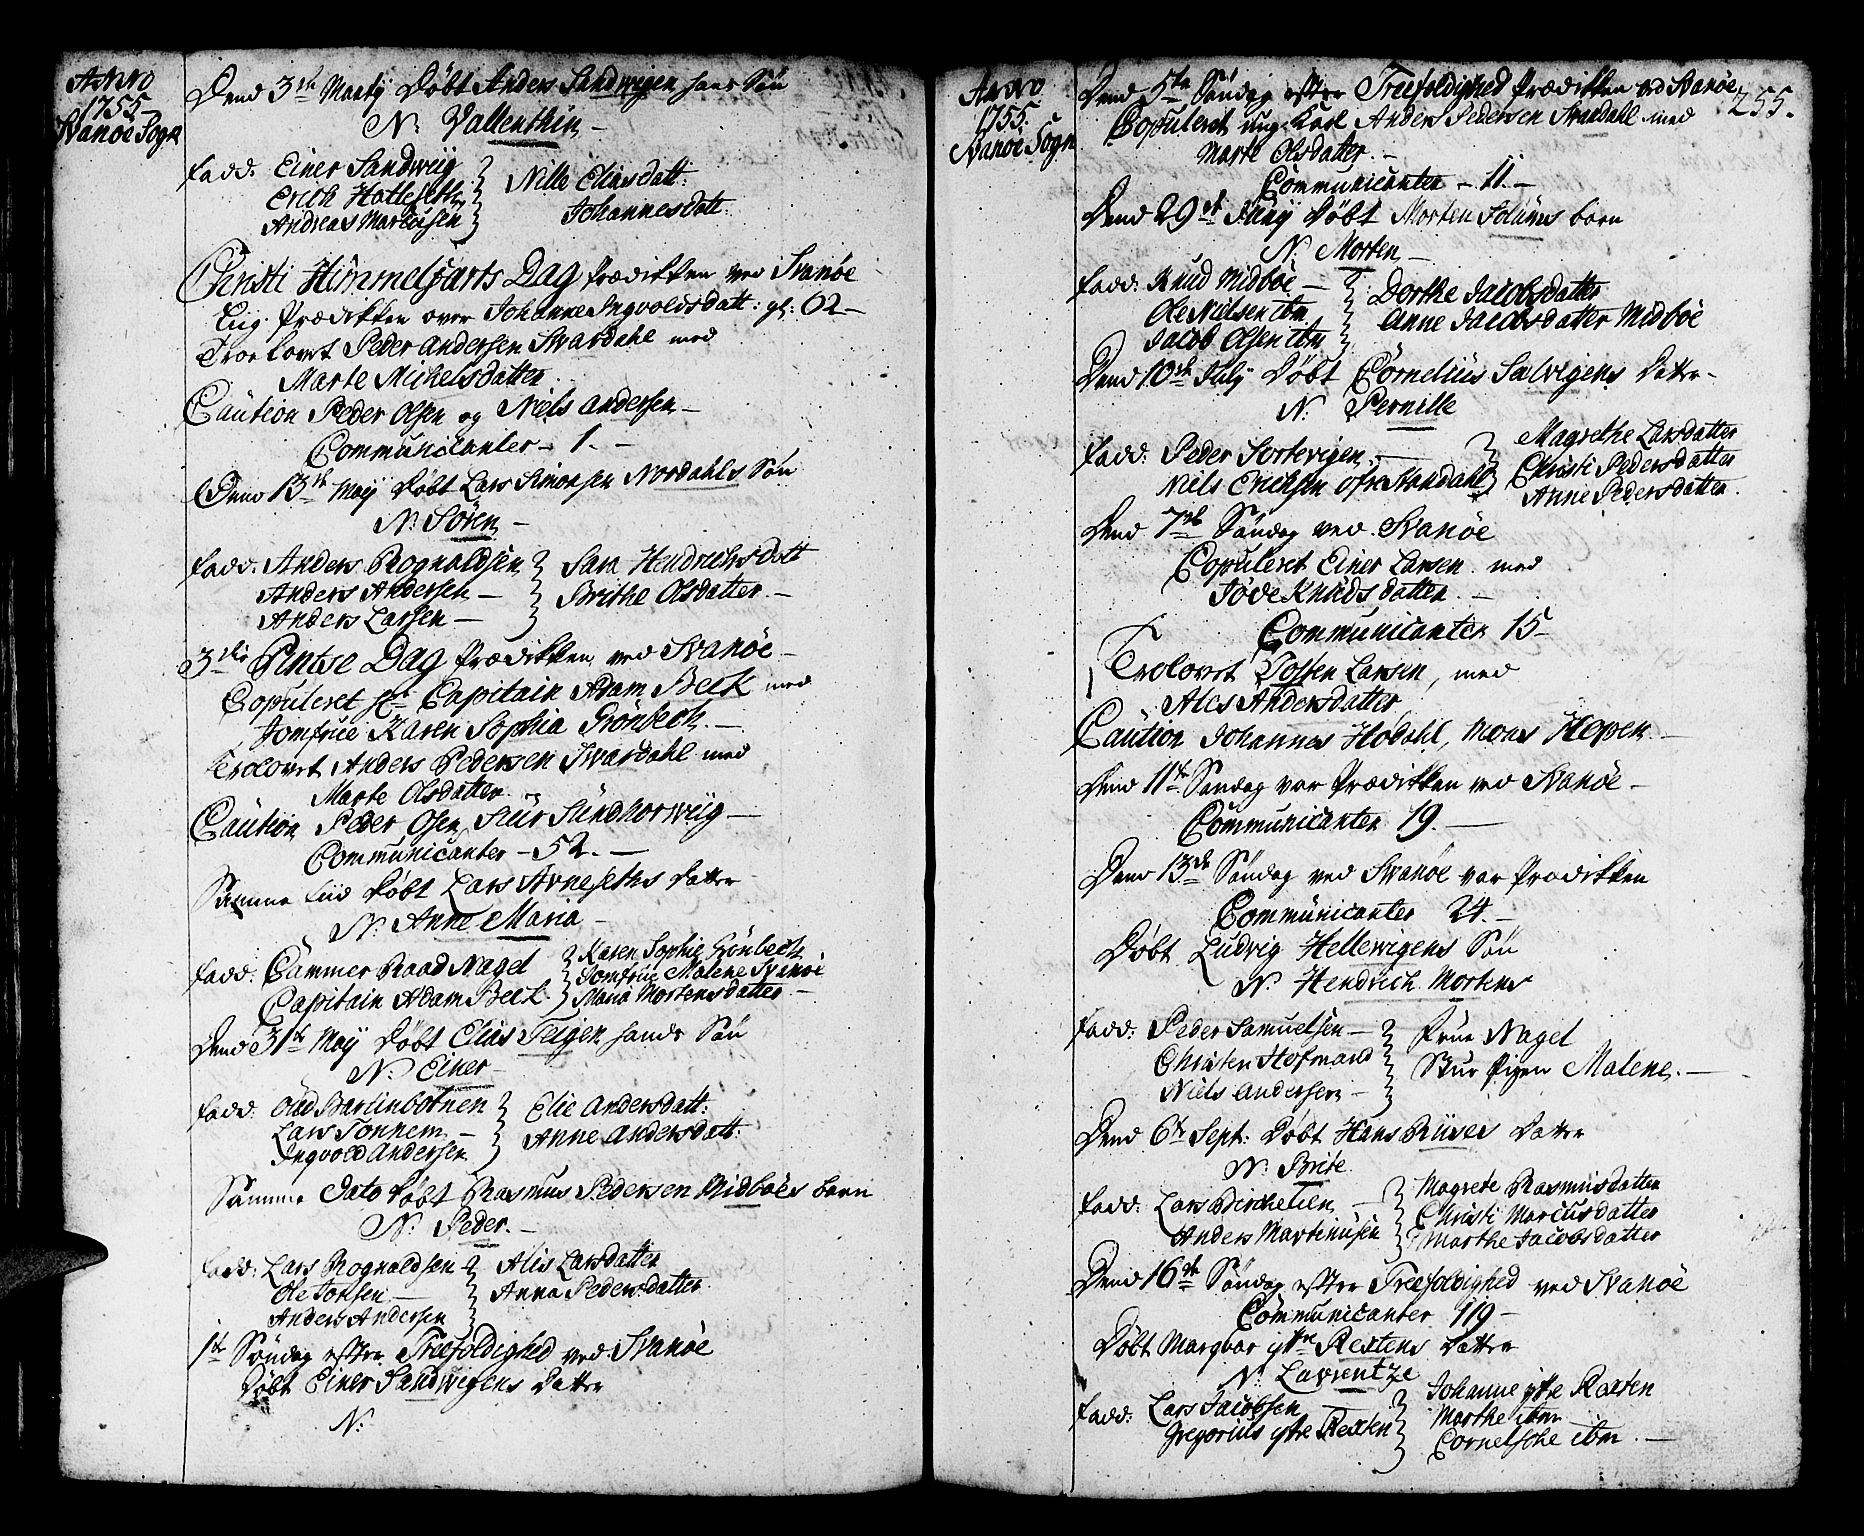 Anno
1755
Svanöe Sogn
Dend 3de Martij Döbt Anders Sandwigen hans Sön
N. Vallenthin
fadd: Einer Sandwiig
Erich Hatleseth
Andreas Marcusen
Nille Eliasdatt:
Johannesdatt:
Christi Himmelfarts Dag Prædikken ved Svanöe
Liig Prædikken over Johanne Ingvoldsdatt: gl: 62
Troelovet Peder Andersen Svardahl med
Marte Michelsdatter
Caution Peder Olsen og Niels Andersen
Communicanter 1.
Dend 13de Maij Döbt Lars Simonsen Nordahls Sön
N. Sören
fadd: Anders Rognaldsen
Anders Andersen
Anders Larsen
Sara Hendrichsdatt
Brithe Olsdatter
3die Pintse Dag Prædikken ved Svanöe
Copuleret Hr. Capitain Adam Beck med
Jomfrue Karen Sophia Grönbech
Trolovet Anders Pedersen Svardahl med
Marte Olsdatter
Caution Peder Olsen, Siur Sundhorwiig
Communicanter 52.
Samme tiid Döbt Lars Arneseths Datter
N. Anne Maria
fadd: Cammer Raad Nagel
Capitain Adam Beck
Karen Sophie Grönbech
Jomfrue Malene Svanöe
Maria Mortensdatter
Dend 31te Maij Döbt Elias Felgen hands Sön
N. Einer
fadd: Olld Barlinbotnen
Lars Tonnem
Ingvold Andersen
Elie Andersdatt:
Anne Andersdatt:
Samme Dato Döbt Rasmus Pedersen Midböes barn
N. Peder
fadd: Lars Rognaldsen
Ole Torsen
Anders Andersen
Alis Larsdatter
Anna Pedersdatter
1te Söndag efter Treefoldighed ved Svanöe
Döbt Einer Sandwigens Datter
N.
Anno
1755
Svanöe Sogn
255.
Dend 5te Söndag efter Treefoldighed Prædikken ved Svanöe
Copuleret ung Karl Anders Pedersen Svardahl med
Marte Olsdatter
Communicanter 11.
Dend 29de Junij Döbt Morten Solüms barn
N. Morten
fadd: Knud Midböe
Ole Nielsen ibm
Jacob Olsen ibm
Dorthe Jacobsdatter
Anne Jacobsdatter Midböe
Dend 10de Julij Döbt Cornelius Salvigens Datter
N. Pernille
fadd: Peder Sortevigen
Niels Erichsen öfre Nordahl
Magrethe Larsdatter
Christi Pedersdatter
Anne Pedersdatter
Dend 7de Söndag ved Svanöe
Copuleret Einer Larsen med
Jöde Knudsdatter
Communicanter 15
Trolovet Tosten Larsen, med
Ales Andersdatter
Caution Johannes Hodahl, Mons Hopen
Dend 11te Söndag var Prædikken ved Svanöe
Communicanter 19.
Dend 13de Söndag ved Svanöe var Prædikken
Communicanter 24.
Döbt Ludvig Hellevigens Sön
N. Hendrich Mortens
fadd: Peder Samuelsen
Christen Hofmand
Niels Andersen
Frue Nagel
Stue Pigen Malene.
Dend 6te Sept: Döbt Hans Ruses Datter
N. Brite
fadd: Lars Birchelien
Anders Martinusen
Magrete Rasmusdatter
Christi Marcusdatter
Marthe Jacobsdatter
Dend 16de Söndag efter Treefoldighed ved Svanöe
Communicanter 119
Döbt Margvar ytre Rextens Datter
N. Lavrentze
fadd: Lars Jacobsen
Gregorius ytre Rexten
Johanne ytre Rexten
Marthe ibm
Cornelsche ibm